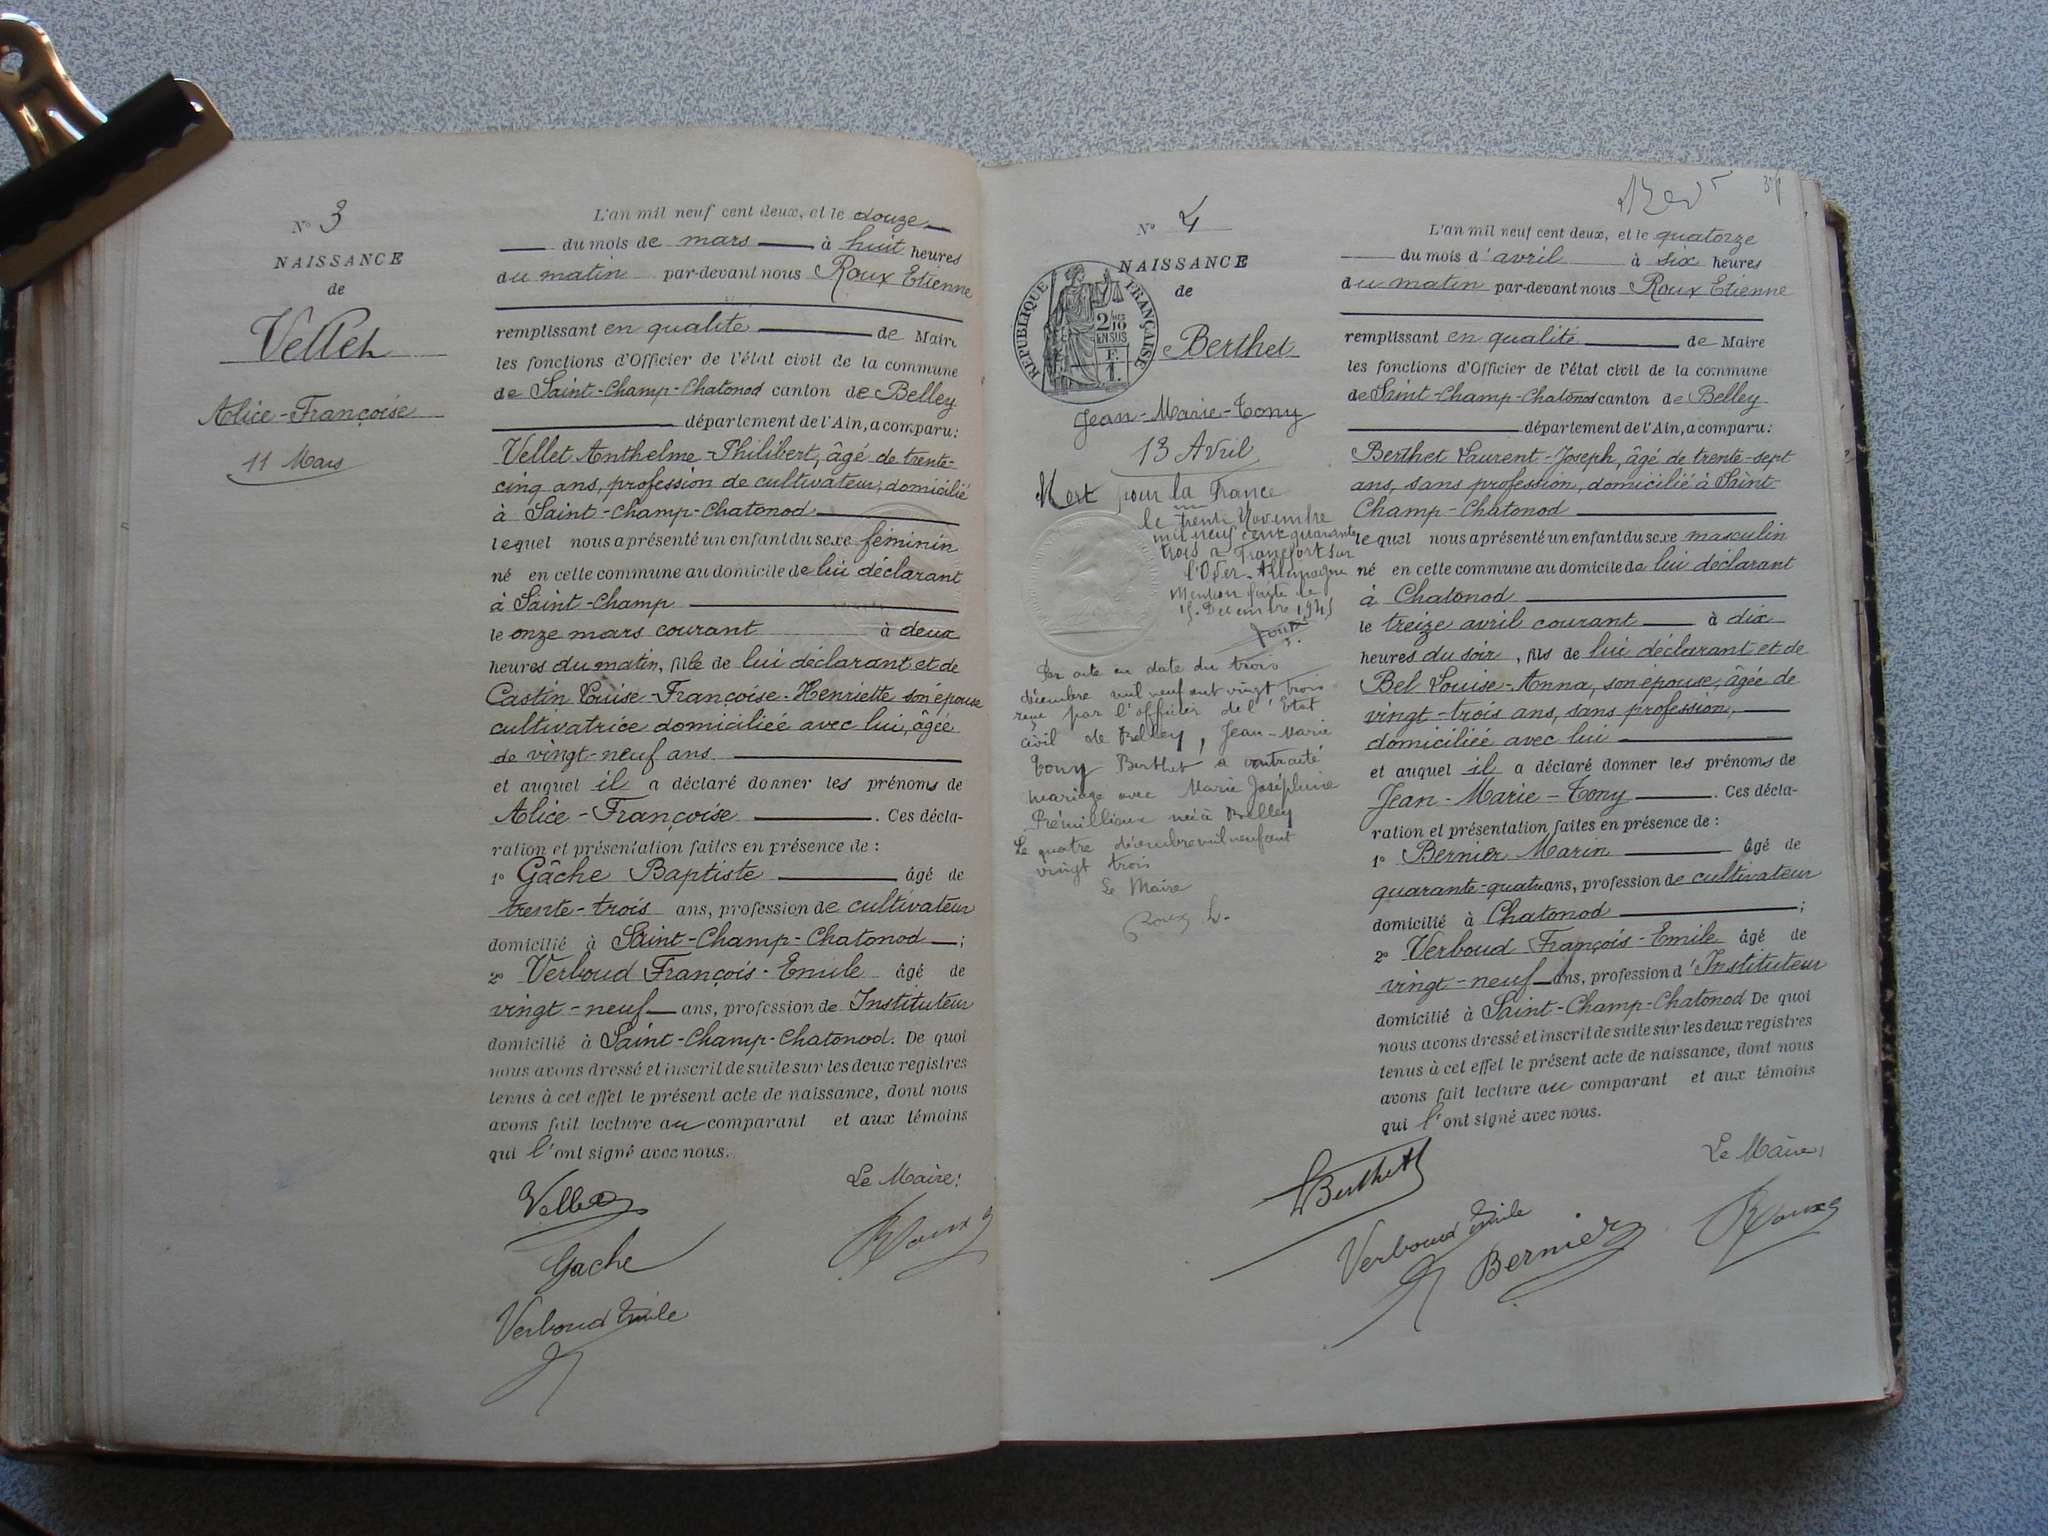 N° 3
NAISSANCE
de
Vellet
Alice-Françoise
11 Mars
L'an mil neuf cent deux, et le douze
du mois de mars à huit heures
du matin par-devant nous Roux Etienne
remplissant en qualité de Maire
les fonctions d'Officier de l'état civil de la commune
de Saint-Champ-Chatonod canton de Belley
département de l'Ain, a comparu:
Vellet Anthelme-Philibert, âgé de trente-
cinq ans, profession de cultivateur, domicilié
à Saint-Champ-Chatonod
lequel nous a présenté un enfant du sexe féminin
né en cette commune au domicile de lui déclarant
à Saint-Champ
le onze mars courant à deux
heures du matin, fille de lui déclarant et de
Castin Louise-Françoise-Henriette son épouse
cultivatrice domiciliée avec lui, âgée
de vingt-neuf ans.
et auquel il a déclaré donner les prénoms de
Alice-Françoise. Ces décla-
ration et présentation faites en présence de :
1° Gâche Baptiste âgé de
trente-trois ans, profession de cultivateur
domicilié à Saint-Champ-Chatonod ;
2° Verboud François-Emile âgé de
vingt-neuf ans, profession de Instituteur
domicilié à Saint-Champ-Chatonod. De quoi
nous avons dressé et inscrit de suite sur les deux registres
tenus à cet effet le présent acte de naissance, dont nous
avons fait lecture au comparant et aux témoins
qui l'ont signé avec nous.
Le Maire:
Vellet
Roux
Gache
Verboud Emile
N° 4
NAISSANCE
de
RÉPUBLIQUE FRANÇAISE
2/10
EN SUS
F.
1.
Berthet
Jean-Marie-Tony
13 Avril
Mort pour la France
le trente Novembre
mil neuf cent quarante
trois à Francfort sur
l'Oder-Allemagne
Mention faite le
15 Décembre 1945
Roux
Par acte en date du trois
décembre mil neuf cent vingt trois
reçu par l'officier de l'Etat
civil de Belley, Jean-Marie
Tony Berthet a contracté
mariage avec Marie Joséphine
Prémillieux née à Belley
Le quatre décembre mil neuf cent
vingt trois
Le Maire
Roux
L'an mil neuf cent deux, et le quatorze
du mois d'avril à six heures
du matin par-devant nous Roux Etienne
remplissant en qualité de Maire
les fonctions d'Officier de l'état civil de la commune
de Saint-Champ-Chatonod canton de Belley
département de l'Ain, a comparu:
Berthet Laurent-Joseph, âgé de trente-sept
ans, sans profession, domicilié à Saint-
Champ-Chatonod
lequel nous a présenté un enfant du sexe masculin
né en cette commune au domicile de lui déclarant
à Chatonod
le treize avril courant à dix
heures du soir, fils de lui déclarant et de
Bel Louise-Anna, son épouse, âgée de
vingt-trois ans, sans profession,
domiciliée avec lui
et auquel il a déclaré donner les prénoms de
Jean-Marie-Tony. Ces décla-
ration et présentation faites en présence de :
1° Bernier Marin âgé de
quarante-quatre ans, profession de cultivateur
domicilié à Chatonod ;
2° Verboud François-Emile âgé de
vingt-neuf ans, profession d'Instituteur
domicilié à Saint-Champ-Chatonod De quoi
nous avons dressé et inscrit de suite sur les deux registres
tenus à cet effet le présent acte de naissance, dont nous
avons fait lecture au comparant et aux témoins
qui l'ont signé avec nous.
Le Maire:
L Berthet
Verboud Emile
Bernier
Roux